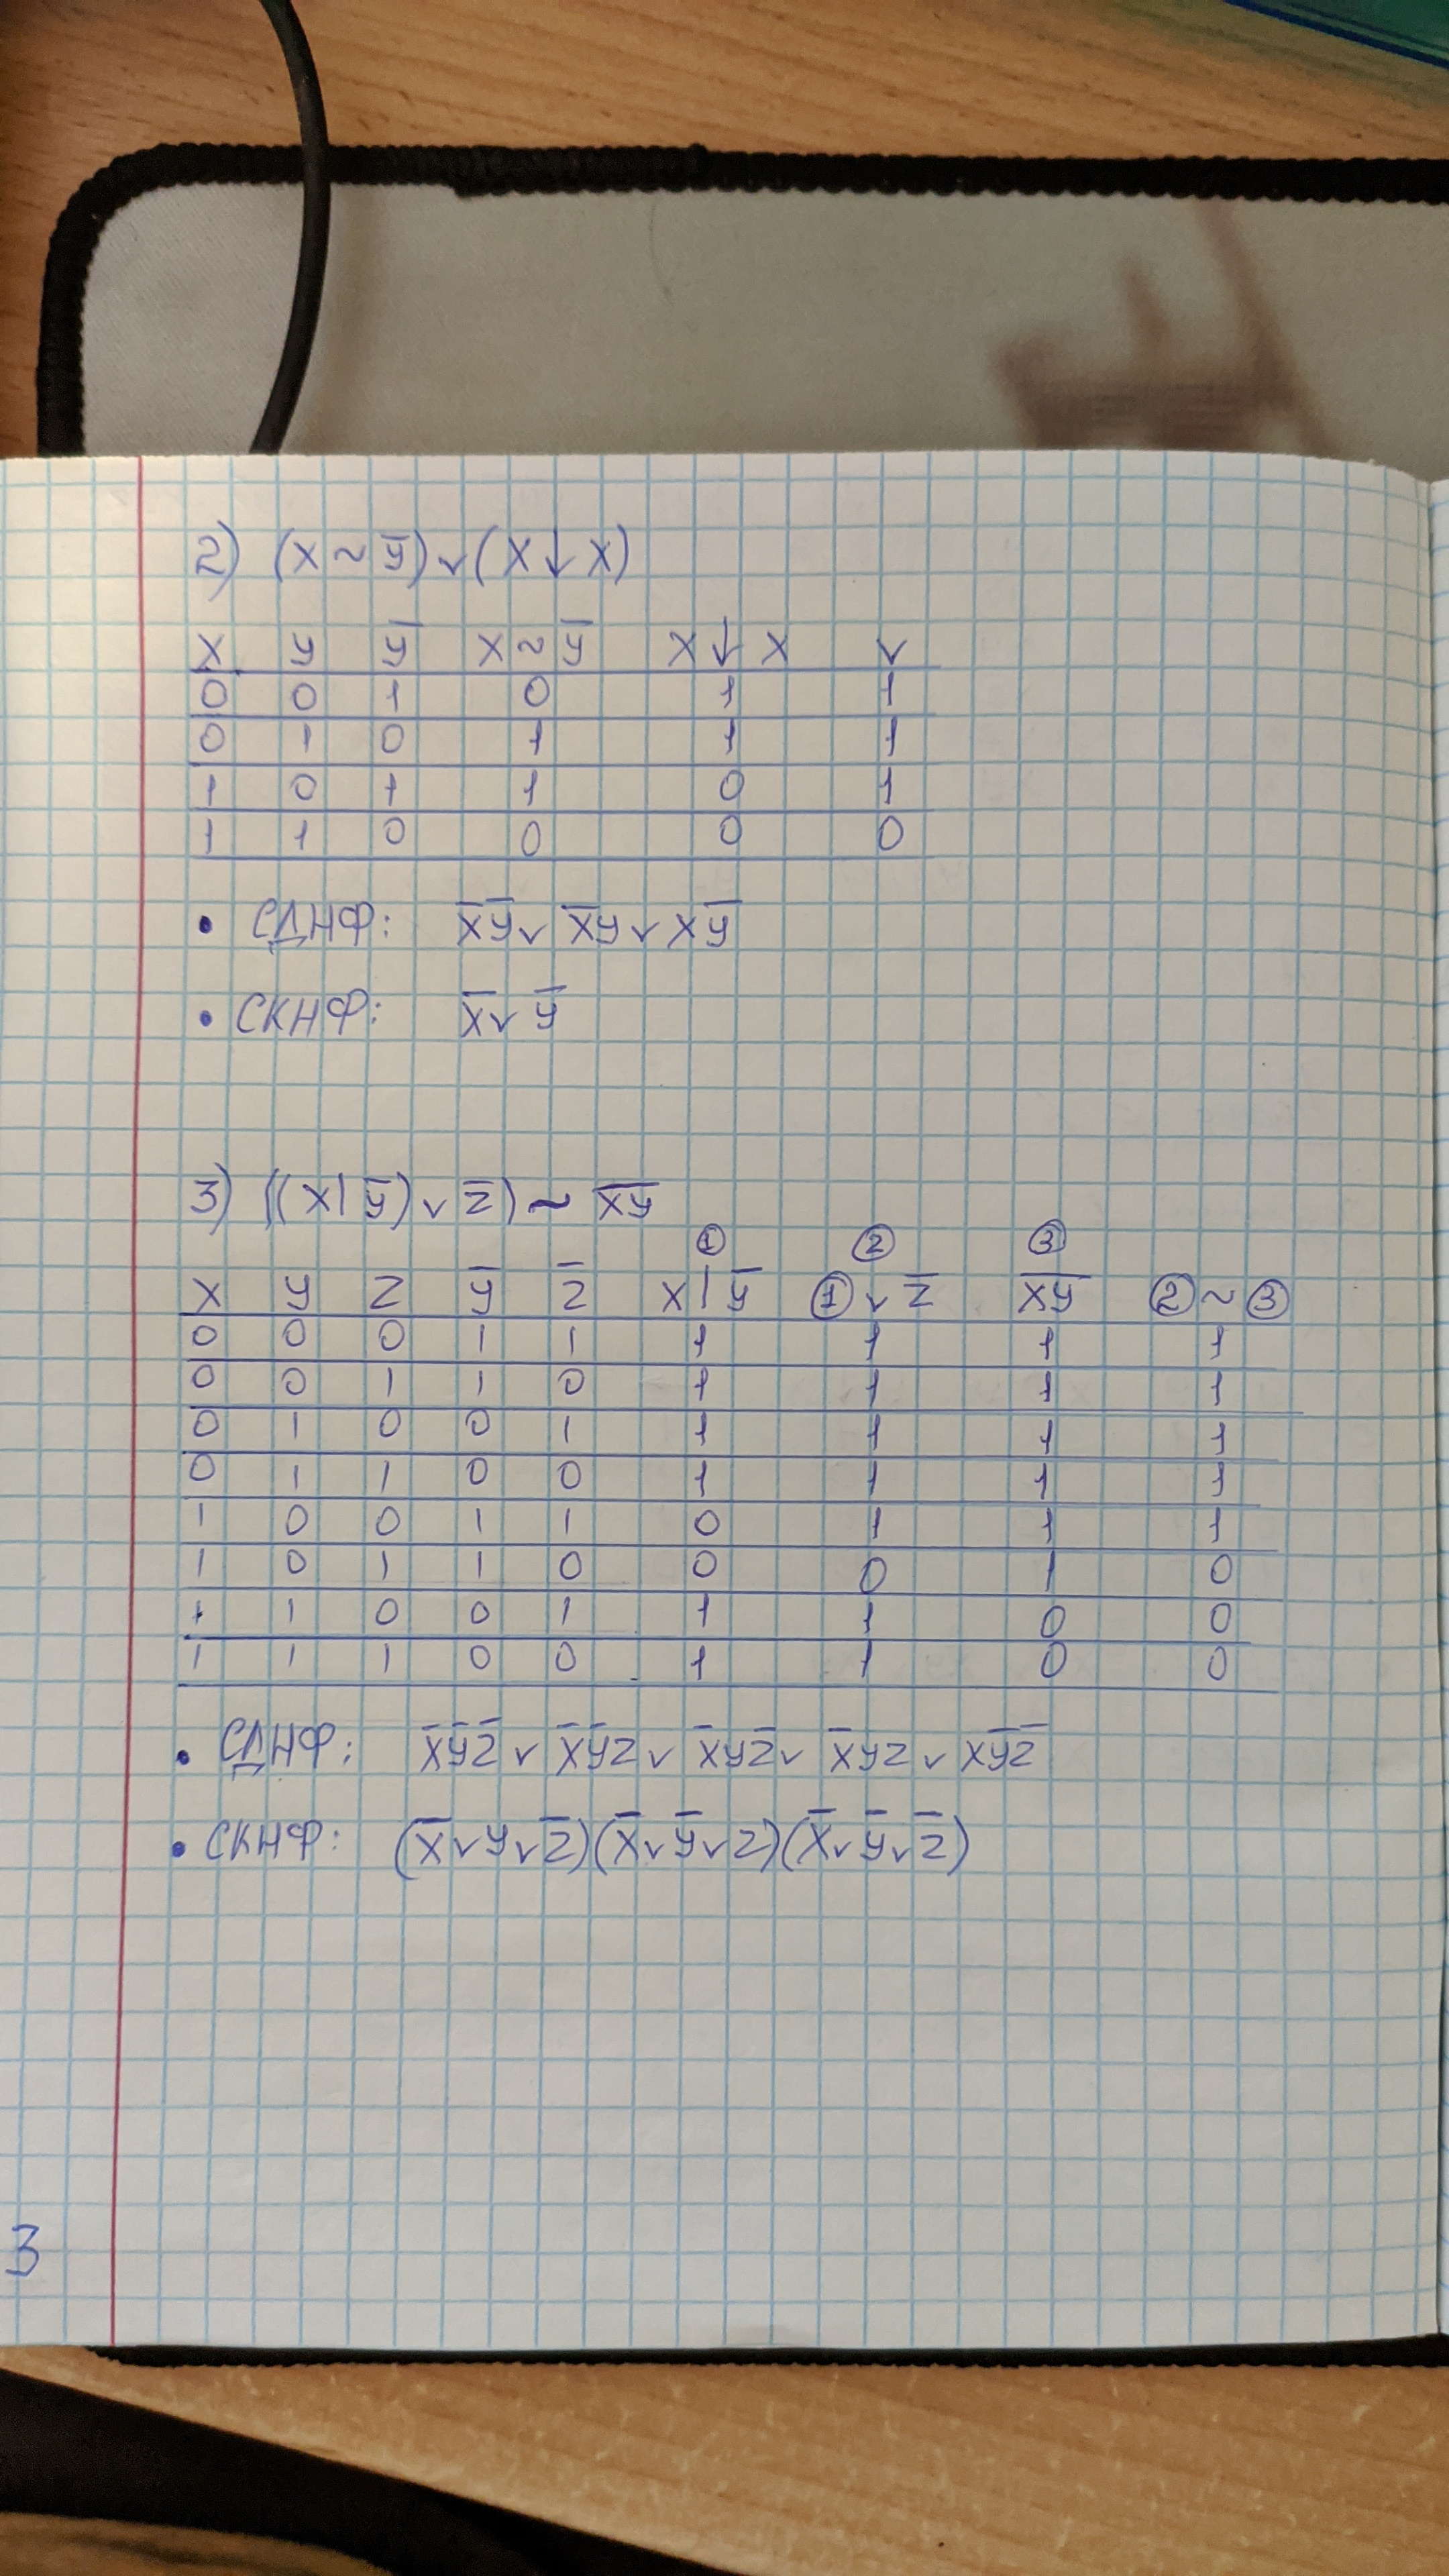 2) (x ~ y̅) ∨ (x ↓ x)
x y y̅ x ~ y̅ x ↓ x ∨
0 0 1 0 1 1
0 1 0 1 1 1
1 0 1 1 0 1
1 1 0 0 0 0
• СДНФ: x̅y̅ ∨ x̅y ∨ xy̅
• СКНФ: x̅ ∨ y̅
3) ((x | y̅) ∨ z̅) ~ x̅y̅
① ② ③
x y z y̅ z̅ x | y̅ ① ∨ z̅ x̅y̅ ② ~ ③
0 0 0 1 1 1 1 1 1
0 0 1 1 0 1 1 1 1
0 1 0 0 1 1 1 1 1
0 1 1 0 0 1 1 1 1
1 0 0 1 1 0 1 1 1
1 0 1 1 0 0 0 1 0
1 1 0 0 1 1 1 0 0
1 1 1 0 0 1 1 0 0
• СДНФ: x̅y̅z̅ ∨ x̅y̅z ∨ x̅yz̅ ∨ x̅yz ∨ xy̅z̅
• СКНФ: (x̅ ∨ y ∨ z̅)(x̅ ∨ y̅ ∨ z)(x̅ ∨ y̅ ∨ z̅)
3